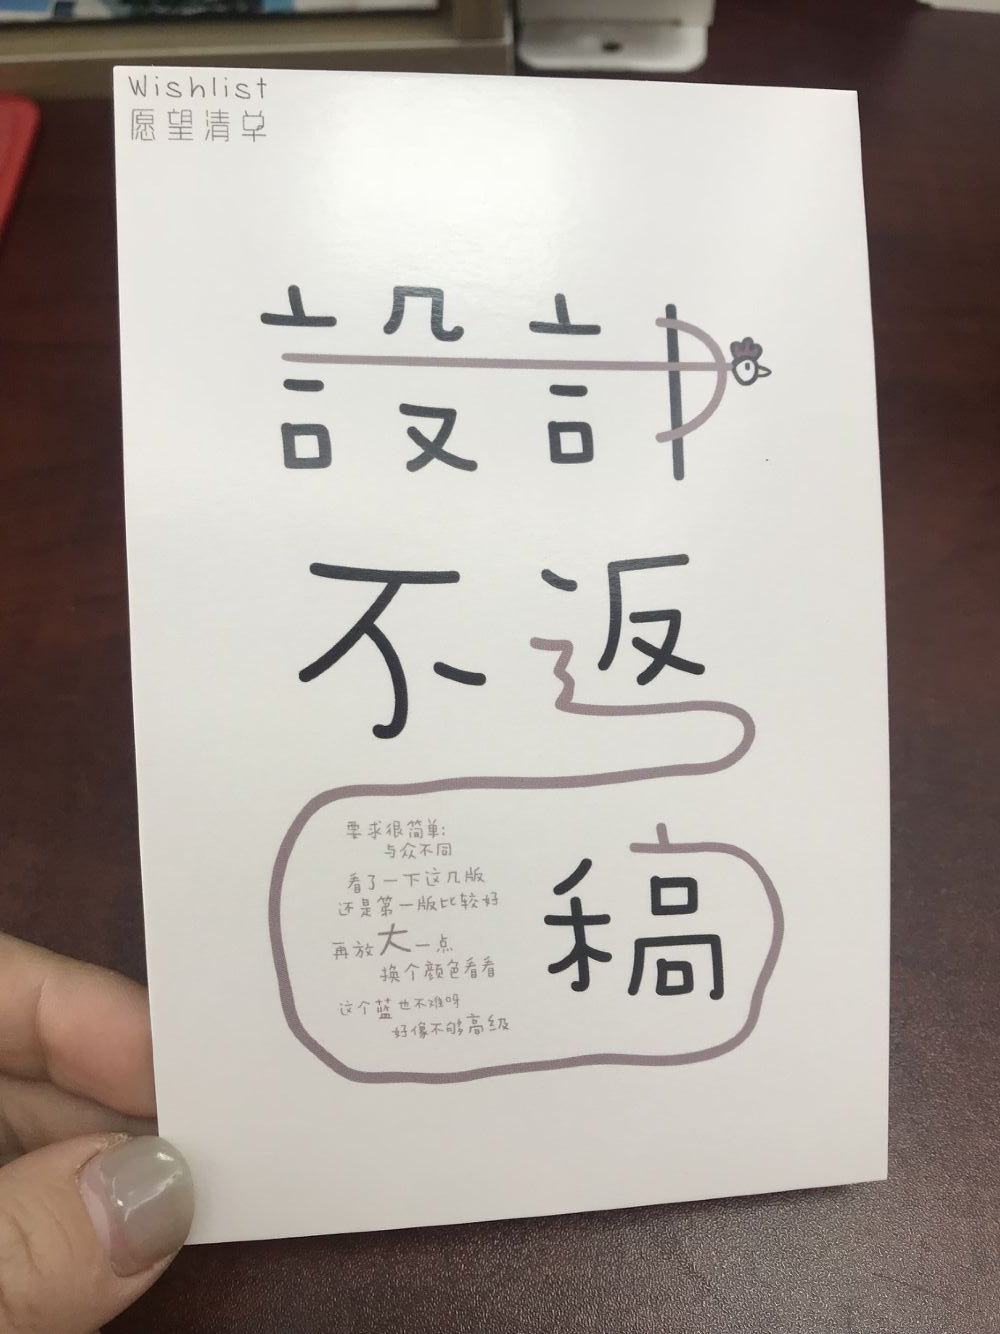 Wishlist
愿望清单
設計
不返
稿
要求很简单:
与众不同
看了一下这几版
还是第一版比较好
再放大一点
换个颜色看看
这个蓝也不难呀
好像不够高级